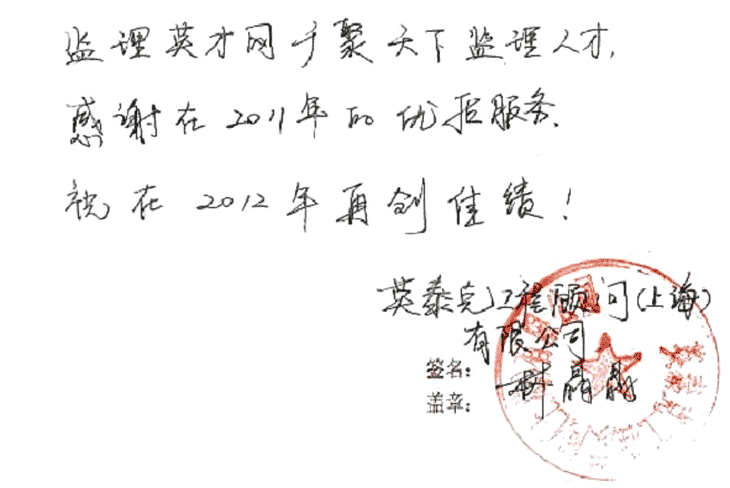 监理英才网于聚天下监理人才,
感谢在2011年的优质服务.
祝在2012年再创佳绩!
英泰克工程顾问(上海)
有限公司
签名:
盖章: